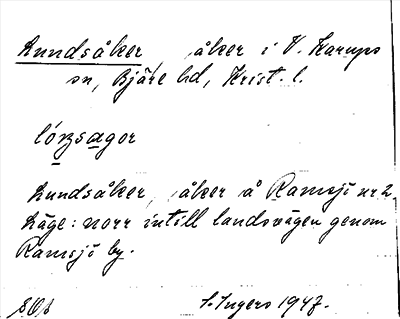 Lundsåker, åker i V. Karups
sn, Bjäre hd, Krist. l.
Lundsåker, åker å Ramsjö nr 2
Läge: norr intill landsvägen genom
Ramsjö by.
I. Ingers 1947.